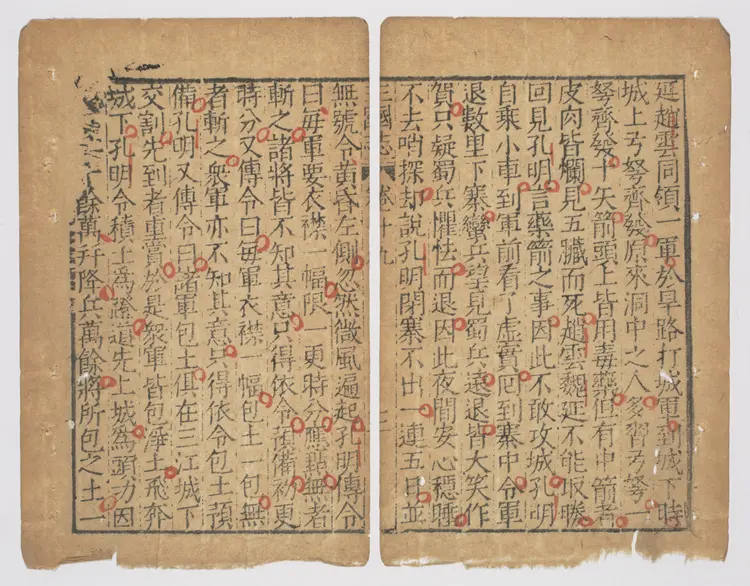 延趙雲同領一軍於旱路打城軍到城下時
城上弓弩齊發原來洞中之人多習弓弩一
弩齊發十矢箭頭上皆用毒藥但有中箭者
皮肉皆爛見五臟而死趙雲魏延不能取勝
回見孔明言藥箭之事因此不敢攻城孔明
自乘小車到軍前看了虛實回到寨中令軍
退數里下寨蠻兵望見蜀兵遠退皆大笑作
賀只疑蜀兵懼怯而退因此夜間安心穩睡
不去哨探却說孔明閉寨不出一連五日並
三國志 卷十九
無號令黄昏左側忽然微風遍起孔明傳令
曰每軍要衣襟一幅限 更時分應點無者
斬之諸將皆不知其意只得依令預備初更
時分又傳令曰每軍衣襟一幅包土一包無
者斬之衆軍亦不知其意只得依令包土預
備孔明又傳令曰諸軍包土俱在三江城下
交割先到者重賞於是衆軍皆包淨土飛奔
城下孔明令積土爲證道先上城爲頭功因
十餘萬并降兵萬餘將所包之土一